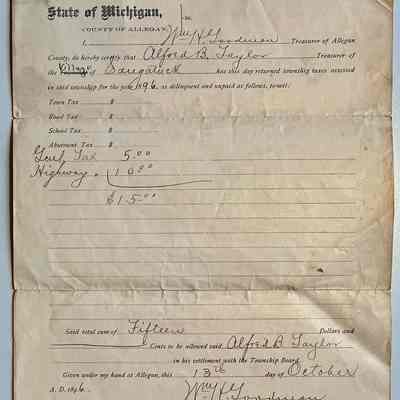 State of Michigan,
ss.
COUNTY OF ALLEGAN,
I, Wm. H. Goodman Treasurer of Allegan
County, do hereby certify that Alfred B. Taylor Treasurer of
the Village of Saugatuck has this day returned township taxes assessed
in said township for the year 1896, as delinquent and unpaid as follows, to-wit:
Town Tax $
Road Tax $
School Tax $
Abatement Tax $
Genl Tax 5.00
Highway " 10.00
$15.00
Said total sum of Fifteen Dollars and
Cents to be allowed said Alfred B Taylor
in his settlement with the Township Board.
Given under my hand at Allegan, this 13th day of October
A. D. 1896. Wm H. Goodman